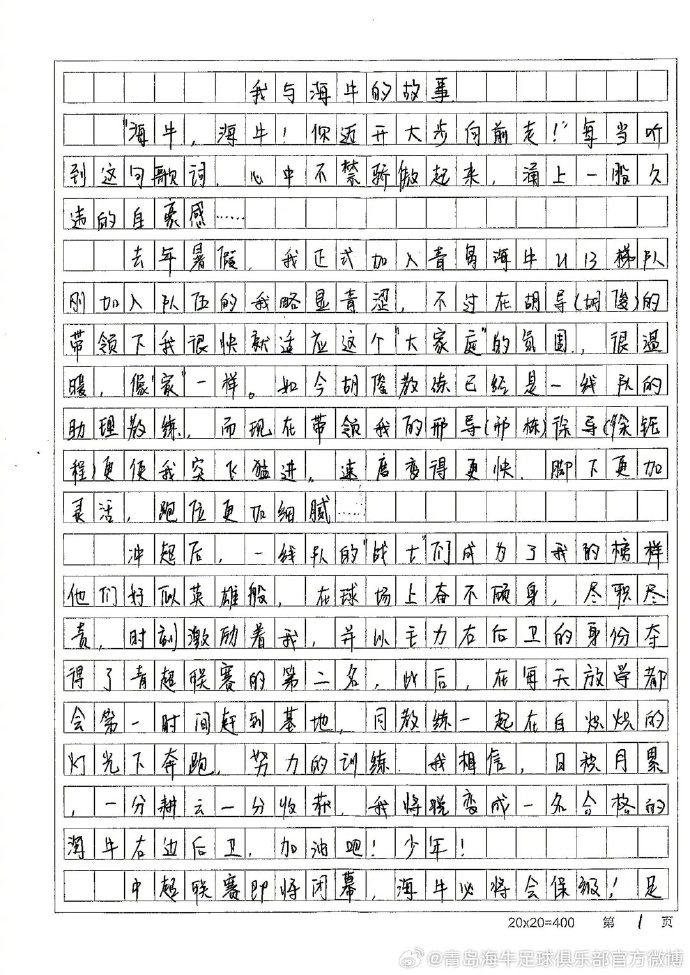 我与海牛的故事
“海牛,海牛!你迈开大步向前走!”每当听
到这句歌词,心中不禁骄傲起来,涌上一股久
违的自豪感……
去年暑假,我正式加入青岛海牛U13梯队
刚加入队伍的我略显青涩,不过在胡导(胡俊)的
带领下我很快就适应这个“大家庭”的氛围,很温
暖,像家”一样。如今胡俊教练已经是一线队的
助理教练,而现在带领我的邢导(邢栋)徐导(徐钰
程)更使我突飞猛进。速度变得更快,脚下更加
灵活,跑位更加细腻……
冲超后,一线队的“战士”们成为了我的榜样
他们好似英雄般,在球场上奋不顾身,尽职尽
责,时刻激励着我,并以主力右后卫的身份夺
得了青超联赛的第二名,此后,在每天放学都
会第一时间赶到基地,同教练一起在白炽炽的
灯光下奔跑,努力的训练.我相信,日积月累
,一分耕云一分收获,我将蜕变成一名合格的
海牛右边后卫,加油吧!少年!
中超联赛即将闭幕,海牛必将会保级!足
20x20=400 第 1 页
@青岛海牛足球俱乐部官方微博